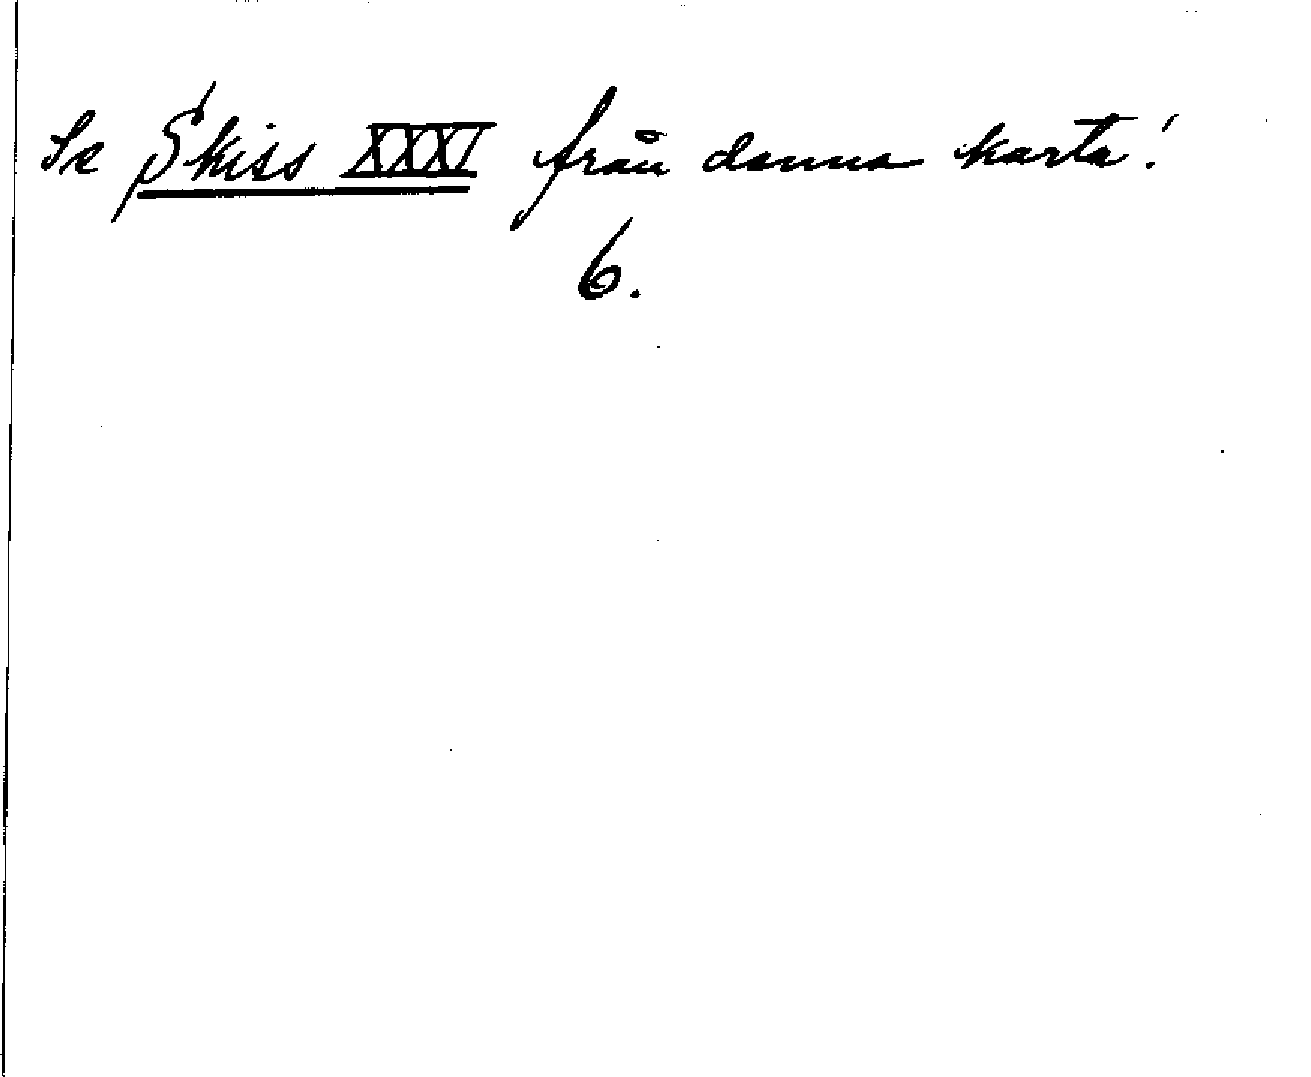 Se Skiss XXXI från denna karta!
6.